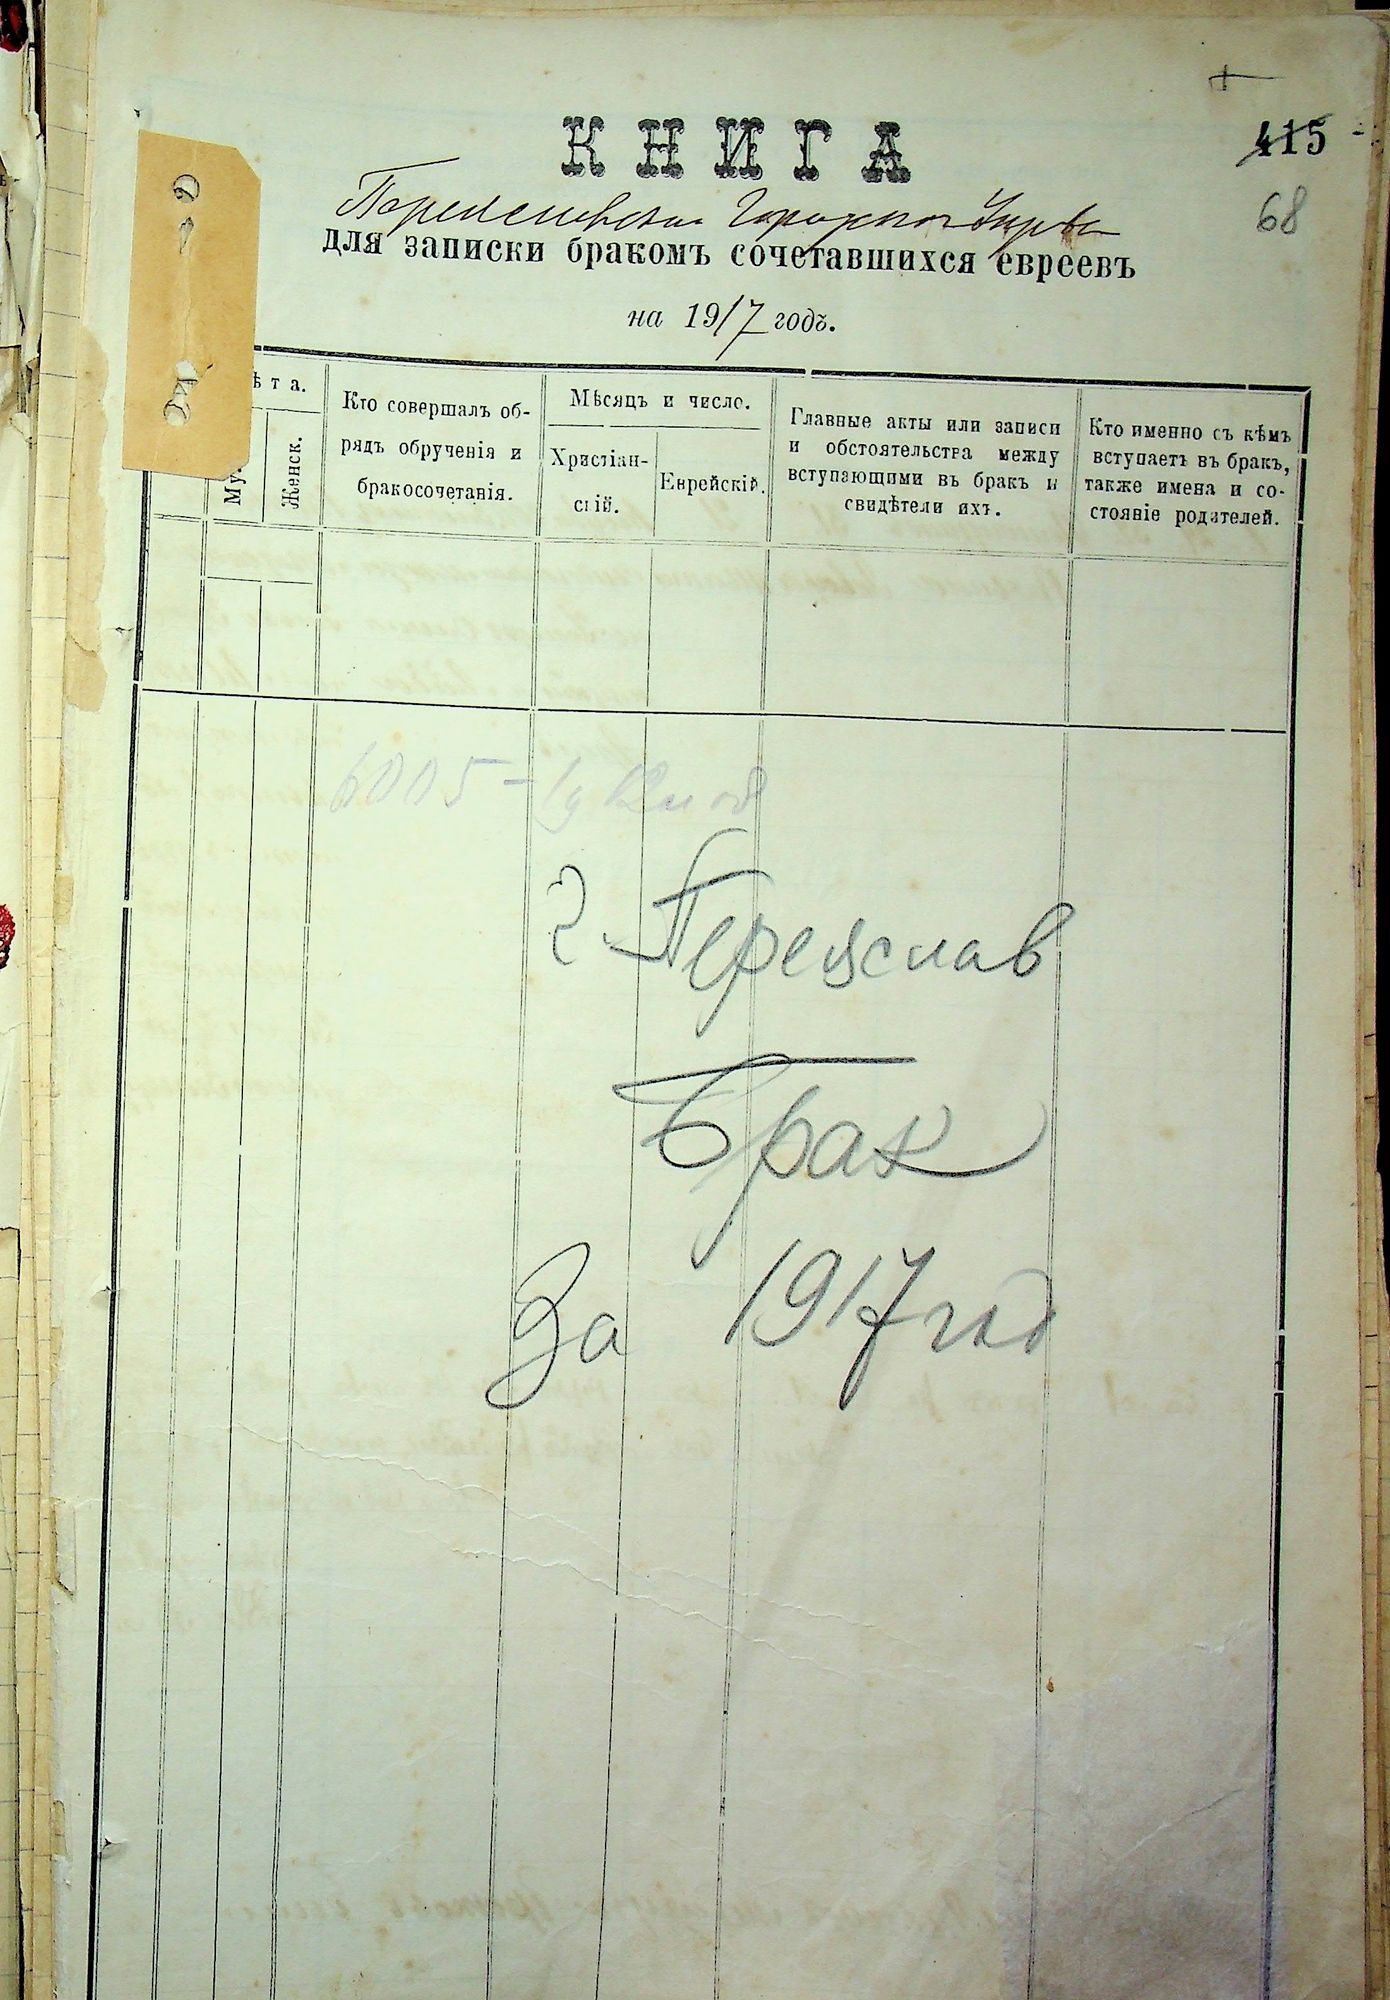 КНИГА
415
68
Переяславская Городская Управа
для записки бракомъ сочетавшихся евреевъ
на 1917 годъ.
ѣта.
Му
Женск.
Кто совершалъ об-
рядъ обрученія и
бракосочетанія.
Мѣсяцъ и число.
Христіан-
скій.
Еврейскій.
Главные акты или записи
и обстоятельства между
вступающими въ бракъ и
свидѣтели ихъ.
Кто именно съ кѣмъ
вступаетъ въ бракъ,
также имена и со-
стояніе родителей.
6005-19
г. Переяслав
Брак
За 1917 год